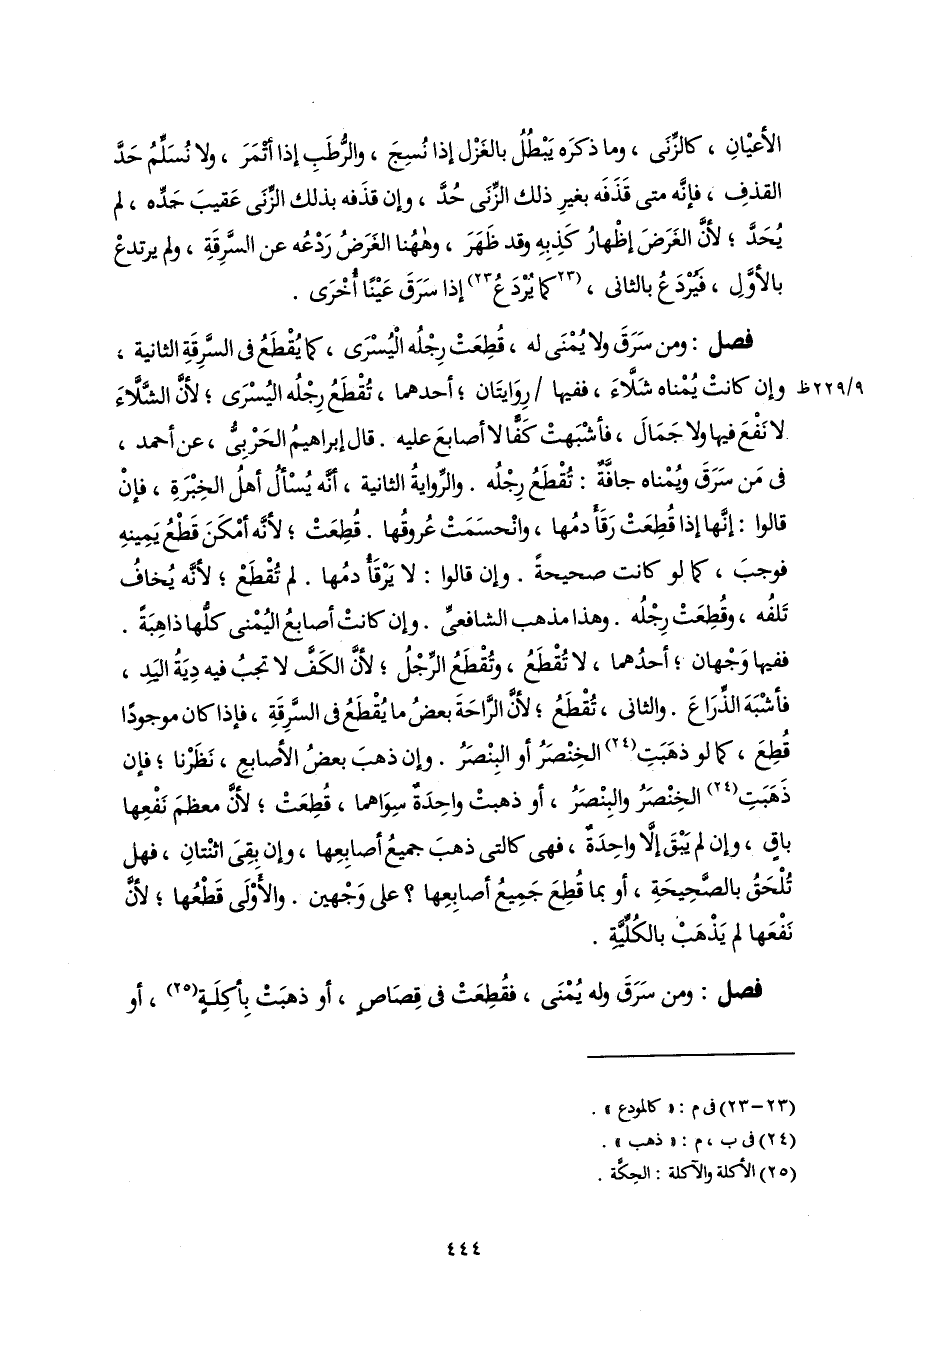 الأعْيانِ ، كالزِّنَى ، وما ذكرَه يَبْطُلُ بالغَزْلِ إذا نُسِجَ ، والرُّطَبِ إذا أتْمَرَ ، ولا نُسَلِّمُ حَدَّ
القذفِ ، فإنَّه متى قَذَفَه بغيرِ ذلك الزِّنَى حُدَّ ، وإن قذَفه بذلك الزِّنَى عَقيبَ حَدِّه ، لم
يُحَدَّ ؛ لأنَّ الغَرَضَ إظْهارُ كَذِبِه وقد ظَهَرَ ، وهٰهُنا الغَرَضُ رَدْعُه عن السَّرِقَةِ ، ولم يرتدعْ
بالأوَّلِ ، فيُرْدَعُ بالثانى ، (٢٣كما يُرْدَعُ٢٣) إذا سَرَقَ عَيْنًا أُخْرَى .
فصل : ومن سَرَقَ ولا يُمْنَى له ، قُطِعَتْ رِجْلُه الْيُسْرَى ، كما يُقْطَعُ فى السَّرِقَةِ الثانية ،
٢٢٩/٩ظ وإن كانتْ يُمْناه شَلَّاءَ ، ففيها / رِوايَتَان ؛ أحدهما ، تُقْطَعُ رِجْلُه اليُسْرَى ؛ لأنَّ الشَّلَّاءَ
لا نَفْعَ فيها ولا جَمَالَ ، فأشْبَهتْ كَفًّا لا أصابعَ عليه . قال إبراهيمُ الحَرْبِىُّ ، عن أحمد ،
فى مَن سَرَقَ ويُمْناه جافَّةٌ : تُقْطَعُ رِجْلُه . والرِّوايةُ الثانية ، أنَّه يُسْألُ أهلُ الخِبْرَةِ ، فإنْ
قالوا : إنَّها إذا قُطِعَتْ رَقَأَ دمُها ، وانْحسَمَتْ عُروقُها . قُطِعَتْ ؛ لأنَّه أمْكَنَ قَطْعُ يَمِينِه
فوجبَ ، كما لو كانت صحيحةً . وإن قالوا : لا يَرْقَأُ دمُها . لم تُقْطَعْ ؛ لأنَّه يُخافُ
تَلَفُه ، وقُطِعَتْ رِجْلُه . وهذا مذهب الشافعىِّ . وإن كانتْ أصابعُ اليُمْنى كلُّها ذاهِبَةً .
ففيها وَجْهان ؛ أحدُهما ، لا تُقْطَعُ ، وتُقْطَعُ الرِّجْلُ ؛ لأنَّ الكَفَّ لا تجبُ فيه دِيَةُ اليَدِ ،
فأشْبَهَ الذِّرَاعَ . والثانى ، تُقْطَعُ ؛ لأنَّ الرَّاحَةَ بعضُ ما يُقْطَعُ فى السَّرِقَةِ ، فإذا كان موجودًا
قُطِعَ ، كما لو ذهَبَتِ(٢٤) الخِنْصَرُ أو البِنْصَرُ . وإن ذهبَ بعضُ الأصابعِ ، نَظَرْنا ؛ فإن
ذَهَبَتِ(٢٤) الخِنْصَرُ والبِنْصَرُ ، أو ذهبتْ واحِدَةٌ سِوَاهما ، قُطِعَتْ ؛ لأنَّ معظمَ نَفْعِها
باقٍ ، وإن لم يَبْقَ إلَّا واحِدَةٌ ، فهى كالتى ذهبَ جميعُ أصابِعِها ، وإن بقِىَ اثْنَتانِ ، فهل
تُلْحَقُ بالصَّحِيحَةِ ، أو بما قُطِعَ جَمِيعُ أصابِعِها ؟ على وَجْهين . والأَوْلَى قَطْعُها ؛ لأنَّ
نَفْعَها لم يَذْهَبْ بالكُلِّيَّةِ .
فصل : ومن سَرَقَ وله يُمْنَى ، فقُطِعَتْ فى قِصَاصٍ ، أو ذهبَتْ بِأَكِلَةٍ(٢٥) ، أو
(٢٣-٢٣) فى م : « كالمودع » .
(٢٤) فى ب ، م : « ذهب » .
(٢٥) الأكلة والآكلة : الحِكَّة .
٤٤٤